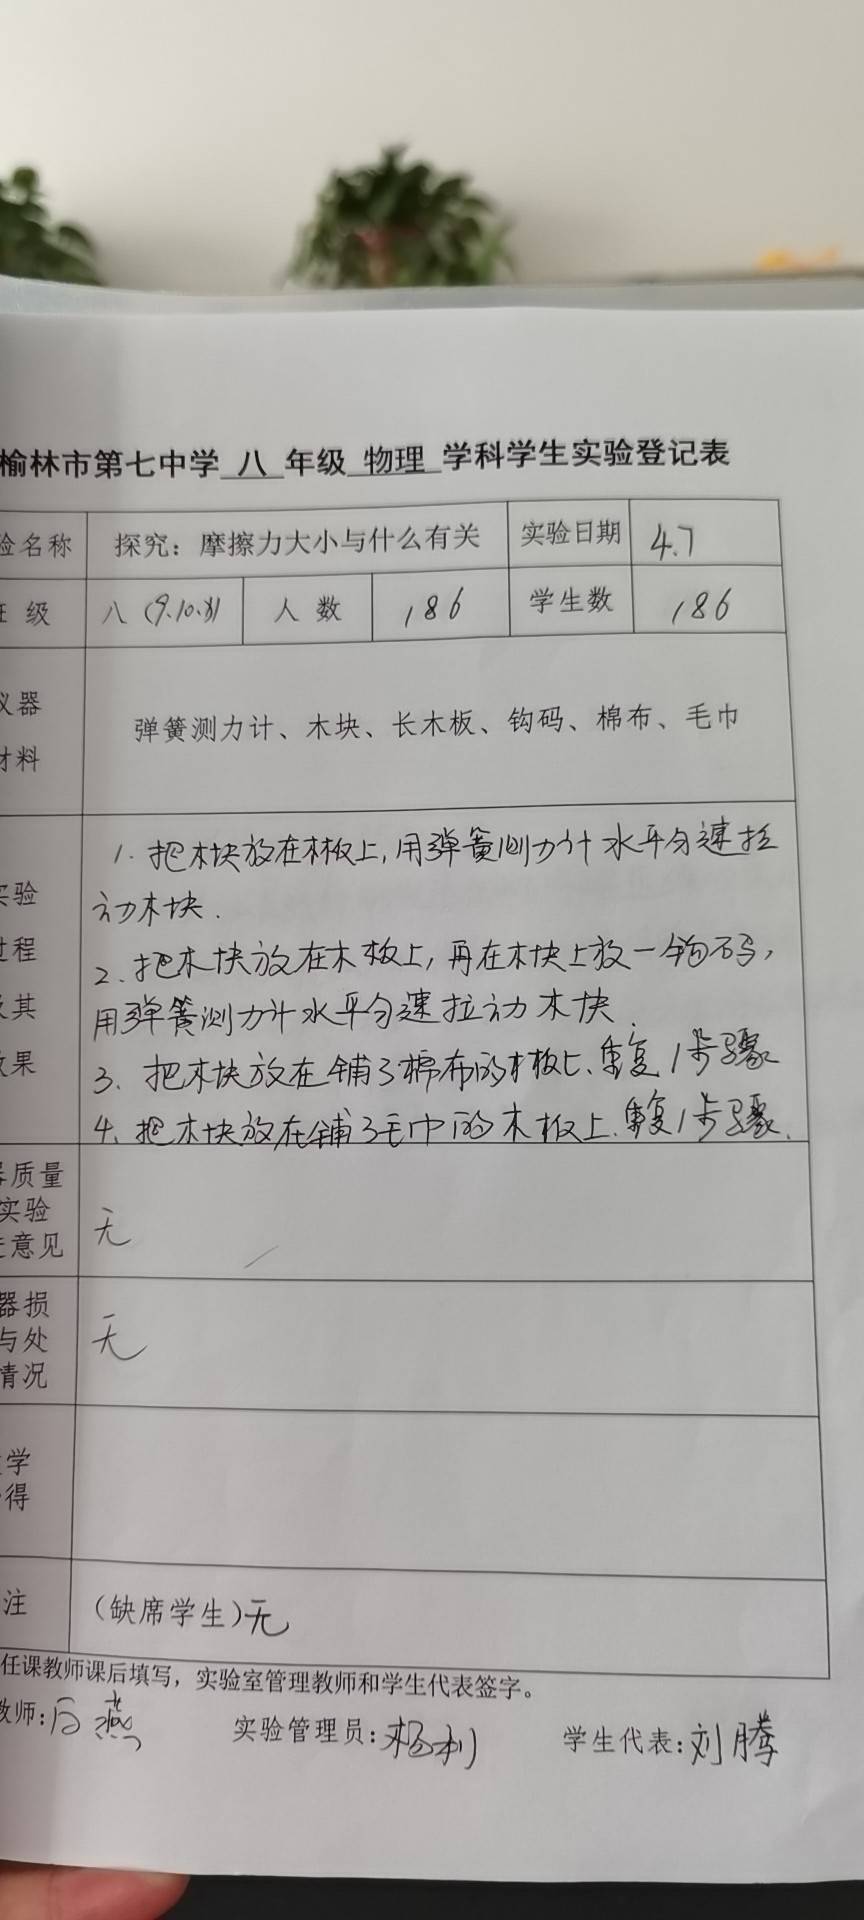 榆林市第七中学 八 年级 物理 学科学生实验登记表
验名称 探究：摩擦力大小与什么有关 实验日期 4.7
级 八（9.10.8） 人 数 186 学生数 186
仪器
材料
弹簧测力计、木块、长木板、钩码、棉布、毛巾
实验
过程
及其
效果
1. 把木块放在木板上，用弹簧测力计水平匀速拉
动木块．
2. 把木块放在木板上，再在木块上放一钩码，
用弹簧测力计水平匀速拉动木块．
3. 把木块放在铺了棉布的木板上、重复1步骤
4. 把木块放在铺了毛巾的木板上．重复1步骤．
质量
实验
意见
无
器损
与处
情况
无
学
得
注 （缺席学生）无
任课教师课后填写，实验室管理教师和学生代表签字。
教师： 实验管理员：杨利 学生代表：刘腾